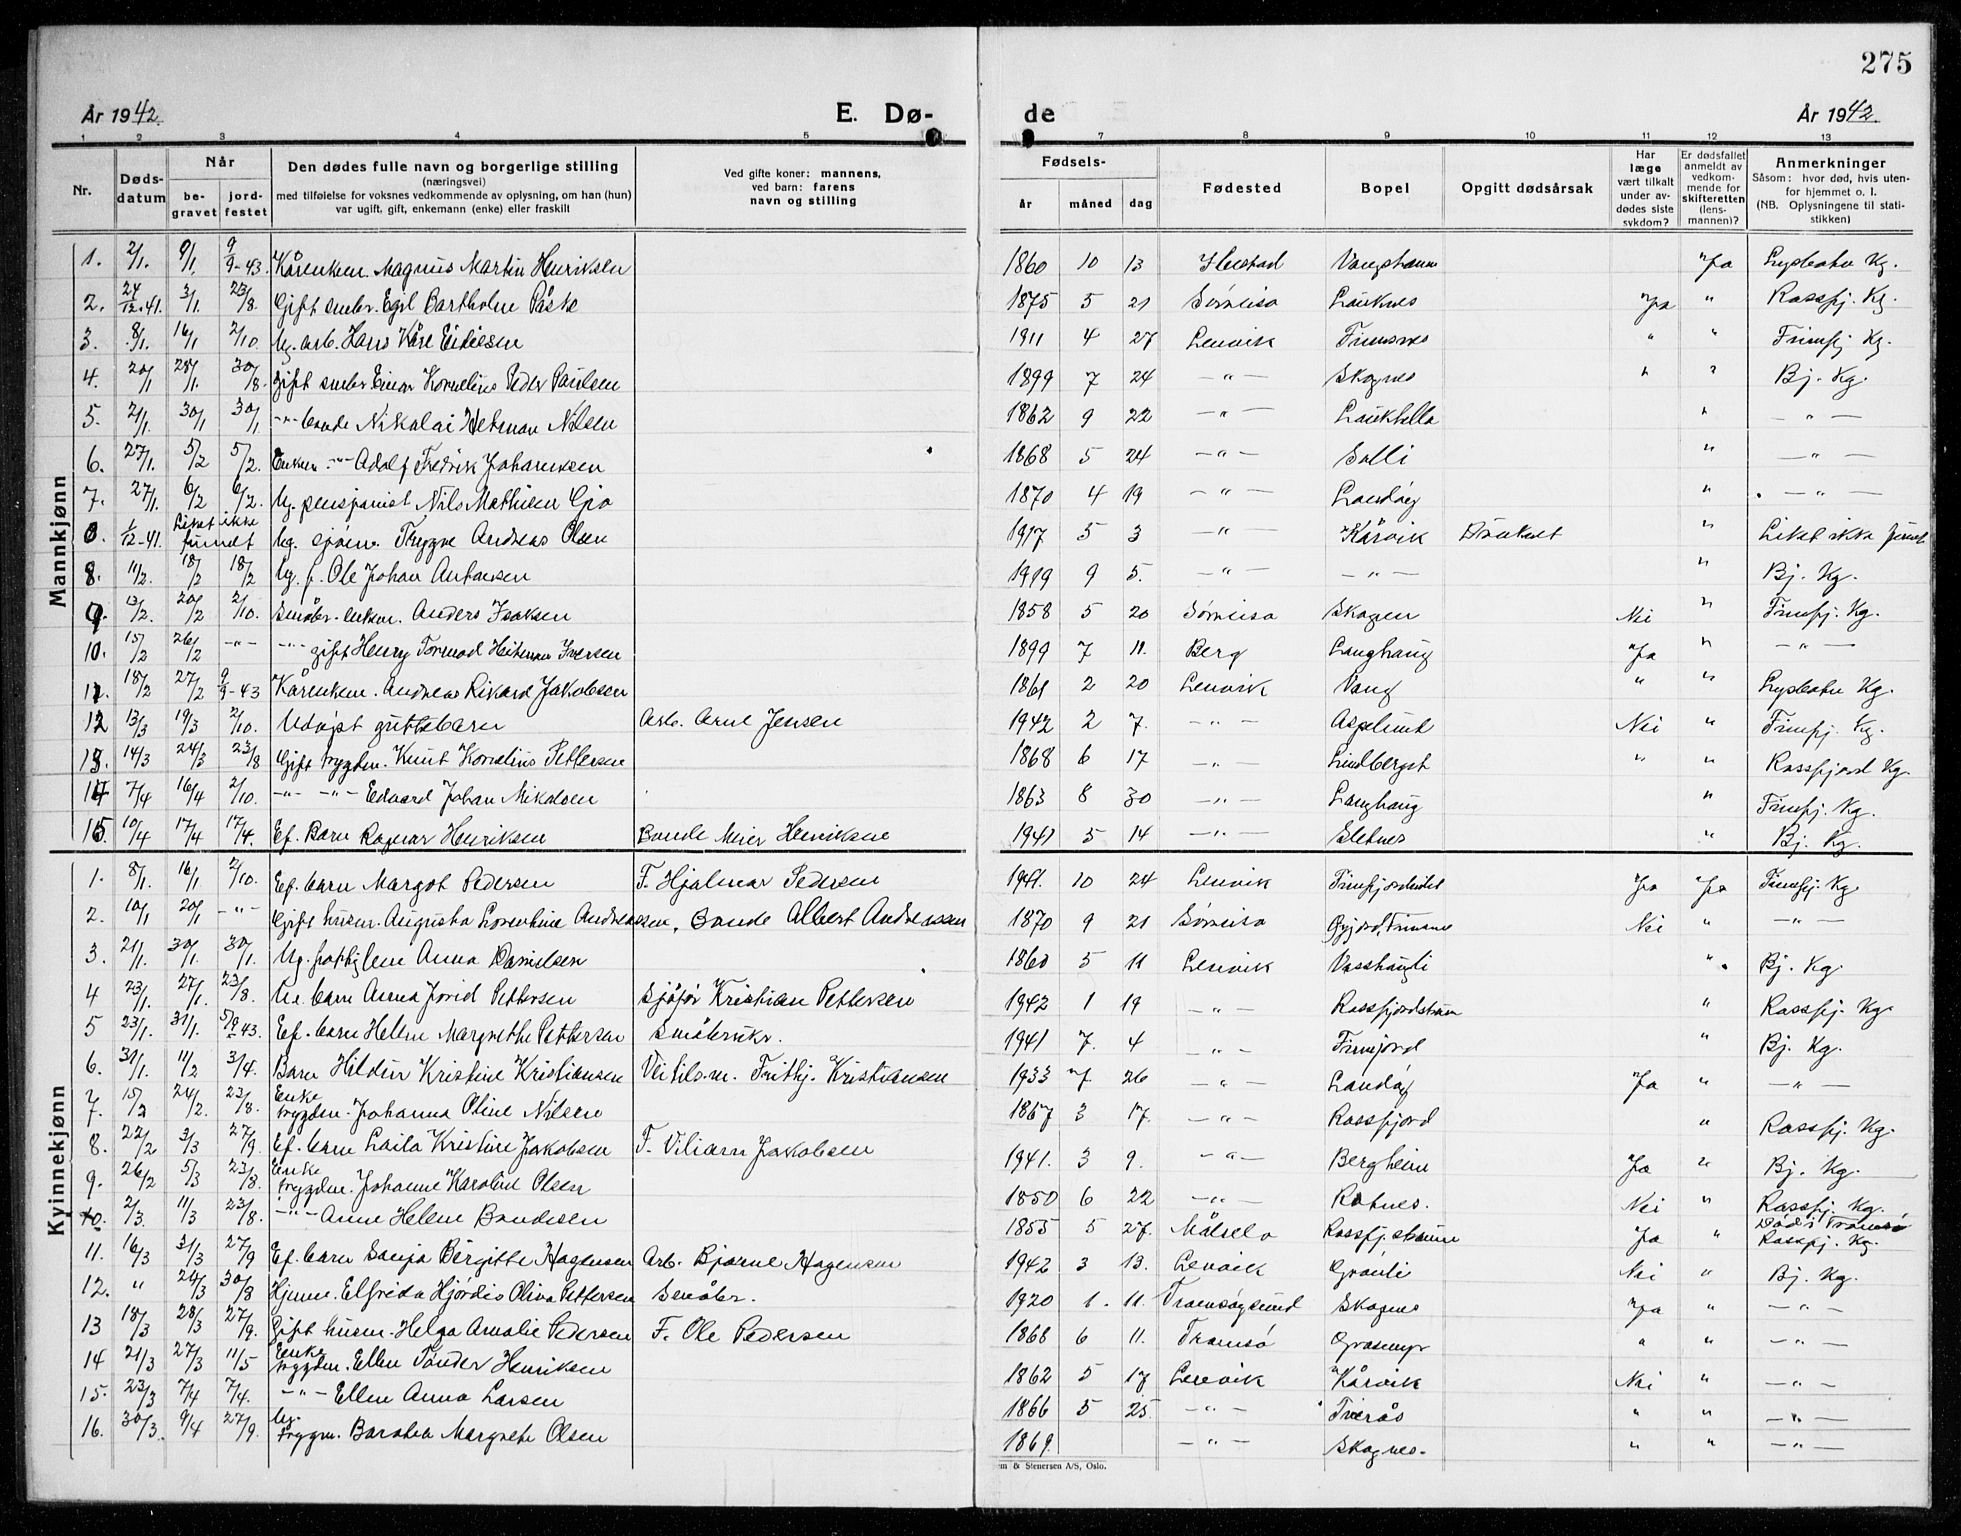 275
År 1942. E. Dø- de År 1942.
1 2 3 4 5 7 8 9 10 11 12 13
Nr. Døds-datum Når be-gravet jord-festet Den dødes fulle navn og borgerlige stilling (næringsvei) med tilføielse for voksnes vedkommende av oplysning, om han (hun) var ugift, gift, enkemann (enke) eller fraskilt Ved gifte koner: mannens, ved barn: farens navn og stilling Fødsels- år måned dag Fødested Bopel Opgitt dødsårsak Har læge vært tilkalt under av-dødes siste sykdom? Er dødsfallet anmeldt av vedkom-mende for skifteretten (lens-mannen)? Anmerkninger Såsom: hvor død, hvis uten-for hjemmet o. l. (NB. Oplysningene til stati-stikken)
Mannkjønn
1. 2/1. 9/1. 9/9-43 Kårenkem. Magnus Martin Henriksen 1860 10 13 Vangshamn Ja Lysbotn Kg.
2. 24/12-41. 3/1. 23/8. Gift småbr. Egil Bartholm Påske 1875 5 21 Sørreisa Lauknes Ja " Rossfj. Kg.
3. 8/1. 16/1 2/10 Ug. arb. Hans Kåre Eidissen 1911 4 27 Lenvik Finnsnes " " Finnfj. Kg.
4. 20/1 28/1. 30/8. Gift småbr Einar Kornelius Peder Paulsen 1899 7 24 — " — Skognes " " Bj. Kg.
5. 21/1. 30/1 30/1 -"- bonde Nikolai Hetman Nilsen 1862 9 22 — " — Laukhella " — " —
6. 27/1. 5/2 5/2. Enkem. -"- Adolf Fredrik Johansen 1868 5 24 — " — Solli " — " —
7. 27/1. 6/2 6/2. Ug. pensjonist Nils Mathisen Gjø 1870 4 19 — " — Sandøy " — " —
0. 1/12-41. Liket ikke funnet Ug. sjøm. Trygve Andreas Olsen 1917 5 3 — " — Kårvik Druknet " Liket ikke funnet
8. 11/2. 18/2 18/2 Ug. f. Ole Johan Antonsen 1919 9 5. — " — — " — " Bj. Kg.
9. 13/2. 20/2 2/10. Småbr. enkem. Anders Isaksen 1858 5 20 Sørreisa Skogen Nei " Finnfj. Kg.
10. 15/2 26/2 -"- -"- gift Henry Tormod Heitman Iversen 1899 7 11. Berg Langhaug Ja " — " —
11. 18/2 27/2 9/9-43 Kårenkem. Andreas Rikard Jakobsen 1861 2 20 Lenvik Vang " " Lysbotn Kg.
12 13/3 19/3 2/10. Udøpt guttebarn Arb. Arne Jensen 1942 2 7. — " — Asplund Nei " Finnfj. Kg.
13. 14/3 24/3 23/8 Gift trygdm. Knut Kornelius Pettersen 1868 6 17 — " — Lindberget " " Rossfjord Kg.
14 7/4 16/4 2/10. -"- -"- Edvard Johan Mikalsen 1863 8 30 — " — Langhaug " Finnfj. Kg.
15. 10/4 17/4 17/4. Ef. Barn Ragnar Henriksen Bonde Meier Henriksen 1941 5 14 — " — Sletnes " Bj. Kg.
Kvinnekjønn
1. 8/1. 16/1 2/10. Ef. barn Margot Pedersen F. Hjalmar Pedersen 1941. 10 24 Lenvik Finnfjordeidet Ja Ja Finnfj. Kg.
2. 10/1 20/1 -"- Gift husm. Augusta Lorentine Andreassen, Bonde Albert Andreassen 1870 9 21 Sørreisa Nei " — " —
3. 21/1. 30/1. 30/1. Ug. fattiglem Anna Danielsen 1860 5 11 Lenvik Vasshaugli " Bj. Kg.
4 23/1. 27/1. 23/8. Ue. barn Anna Jorid Pettersen Sjåfør Kristian Pettersen 1942 1 19 — " — Rossfjordstraum " Rossfj. Kg.
5 23/1. 31/1. 5/9-43. Ef. barn Helen Margrethe Pettersen Småbruker. 1941 7. 4 — " — Finnfjord " Bj. Kg.
6. 31/1. 11/2 3/4. Barn Hildur Kristine Kristiansen Veitils.m. Frithj. Kristiansen 1933 7. 26 — " — Sandøy Ja " — " —
7. 15/2 24/2. 23/8. Enke trygdm. Johanna Oline Nilsen 1867 3 17. — " — Rossfjord " Rossfj. Kg.
8. 22/2 3/3 27/9. Ef. barn Laila Kristine Jakobsen F. Viliam Jakobsen 1941. 3 9. — " — Bergheim Ja " Bj. Kg.
9. 26/2 5/3 23/8. Enke trygdm. Johanne Karoline Olsen 1850 6 22 — " — Rotnes. Nei " Rossfj. Kg.
10. 2/3. 11/3 23/8. -"- Anne Helene Bendiksen 1855 5 27. Målselv Rossfj. straum Ja " Død i Tromsø Rossfj. Kg.
11. 16/3 31/3 27/9 Ef. barn Sonja Birgitte Hagensen Arb. Bjarne Hagensen 1942 3 13. Lenvik Grønli Nei " Bj. Kg.
12. " 24/3 30/8 Hjemm. Elfrida Hjørdis Oliva Pettersen Småbr. 1920 1. 11. Tromsøysund Skognes Ja " — " —
13 18/3 28/3 27/9. Gift husm. Helga Amalie Pedersen F. Ole Pedersen 1868 6 11. Tromsø Grasmyr " " — " —
14 21/3 27/3 11/5 Enke trygdm. Ellen Tønder Henriksen 1862 5 17 Lenvik Kårvik Nei " — " —
15. 23/3 7/4 7/4. — " — Ellen Anna Larsen 1866 5 25 — " — Tverås " " — " —
16. 30/3. 9/4 27/9. Ug. trygm. Barohea Margrete Olsen 1869. — " — Skognes. " " — " —
em & Stenersen A/S, Oslo.